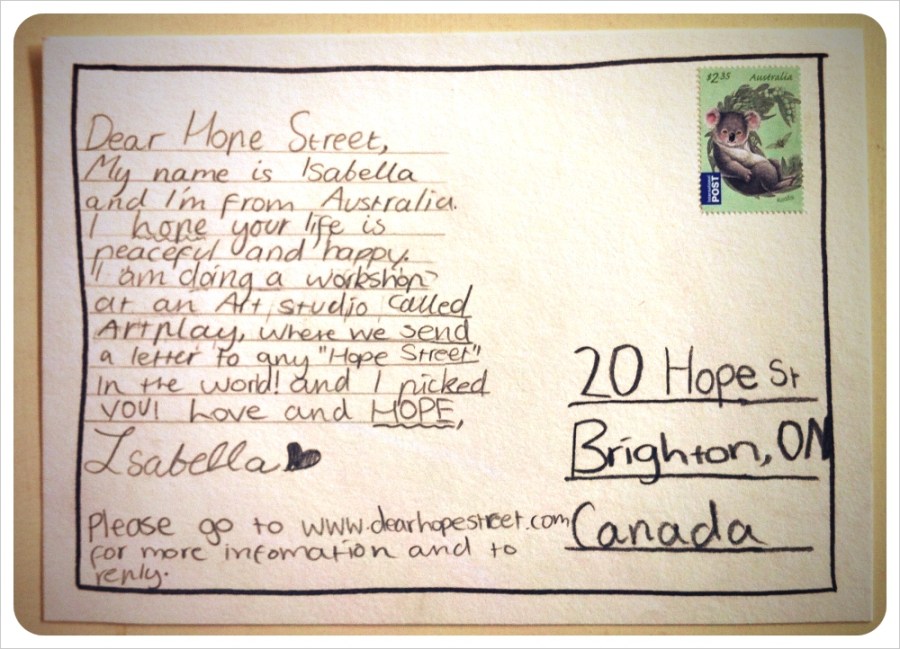 Dear Hope Street,
My name is Isabella
and I'm from Australia.
I hope your life is
peaceful and happy.
I am doing a workshop
at an Art studio called
Artplay, where we send
a letter to any "Hope Street"
in the world! and I picked
YOU! Love and HOPE,
Isabella
Please go to www.dearhopestreet.com
for more infomation and to
reply.
$2.35 Australia
POST
20 Hope St
Brighton, ON
Canada